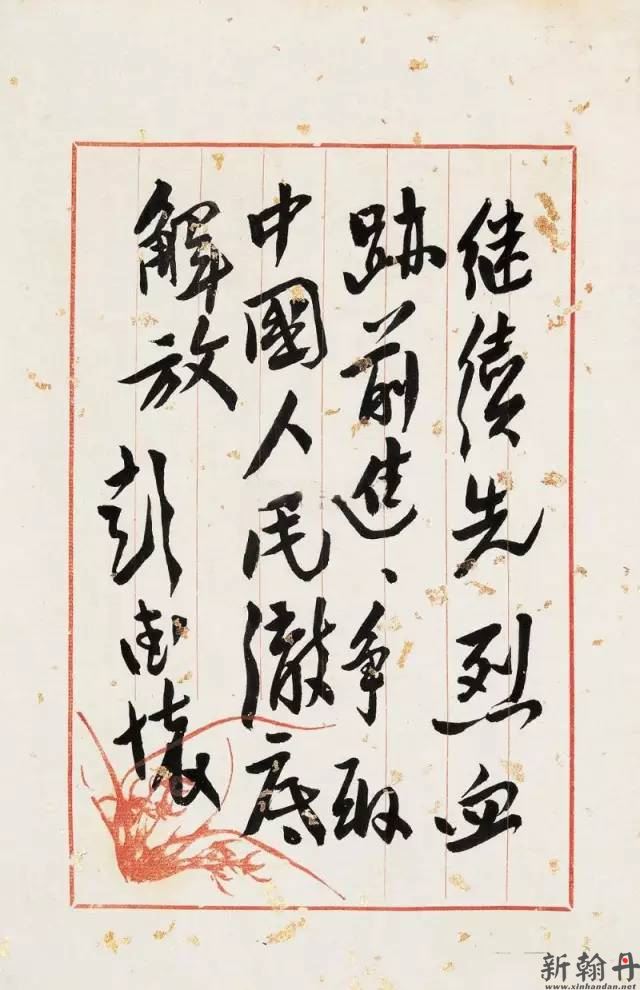 继续先烈血
跡前进、争取
中國人民澈底
解放 彭德懷
新翰丹
www.xinhandan.net